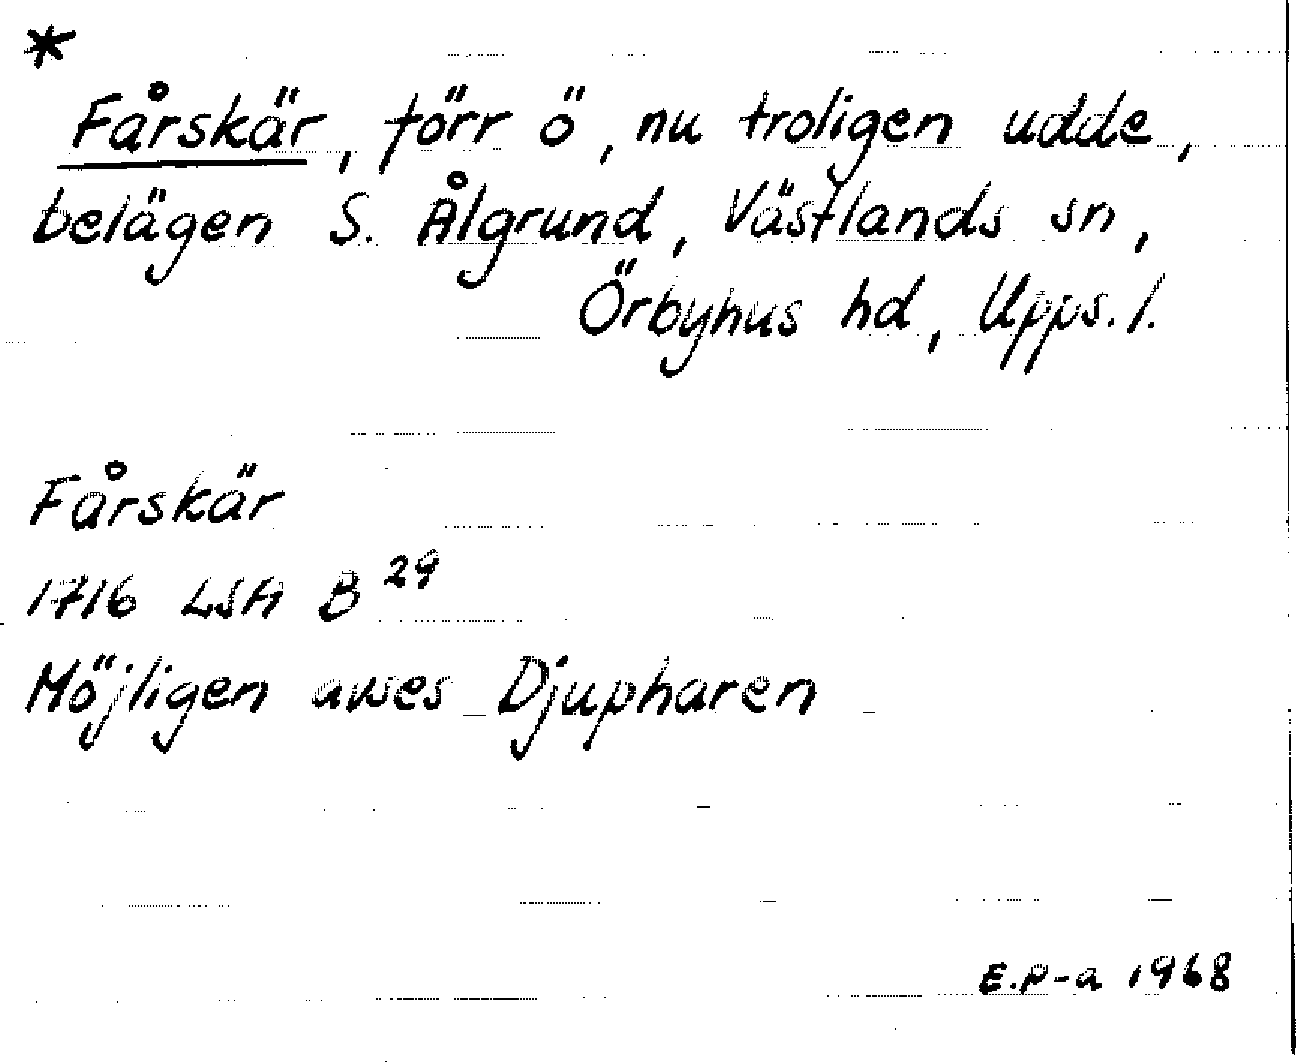 *
Fårskär, förr ö, nu troligen udde,
belägen S. Ålgrund, Västlands sn,
Örbyhus hd, Upps. l.
Fårskär
1716 LSA B 29
Möjligen avses Djupharen
E.P-a 1968